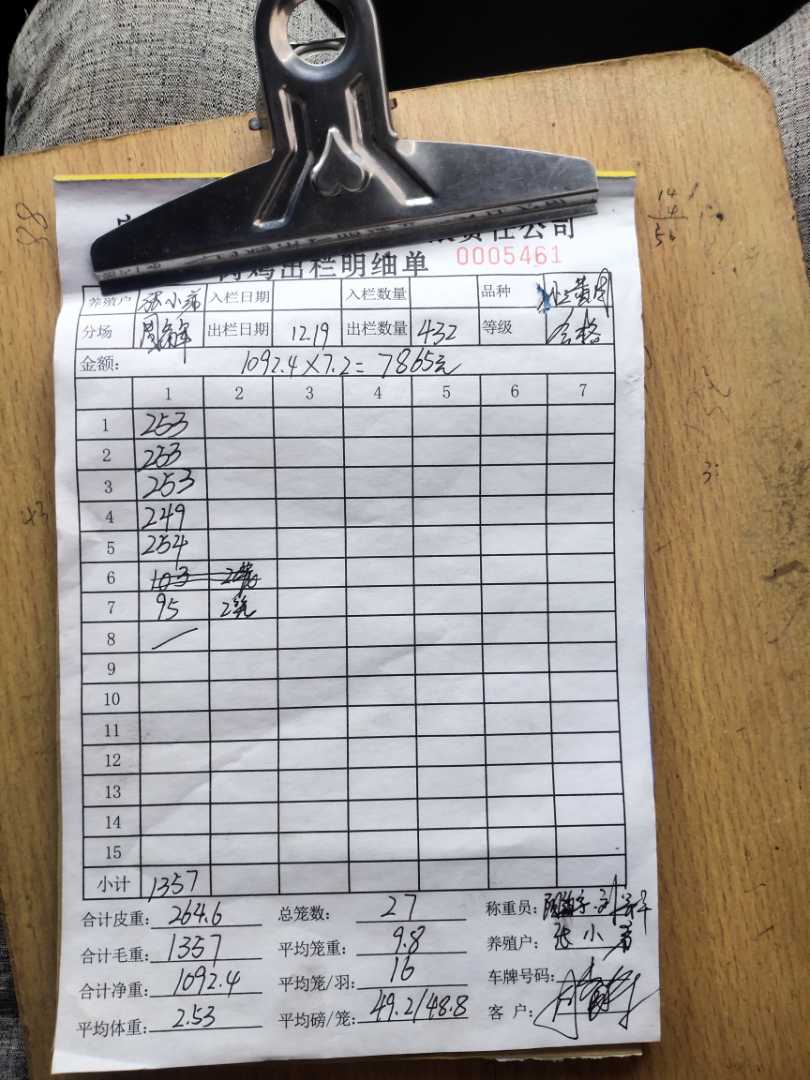 责任公司
鸡出栏明细单 0005461
养殖户 张小 入栏日期 入栏数量 品种
分场 出栏日期 12.19 出栏数量 432 等级 合格
金额: 1092.4×7.2=7865元
1 2 3 4 5 6 7
1 253
2 253
3 253
4 249
5 254
6 103
7 95 2笼
8
9
10
11
12
13
14
15
小计 1357
合计皮重: 264.6 总笼数: 27 称重员:
合计毛重: 1357 平均笼重: 9.8 养殖户: 张小
合计净重: 1092.4 平均笼/羽: 16 车牌号码:
平均体重: 2.53 平均磅/笼: 49.2/48.8 客户: